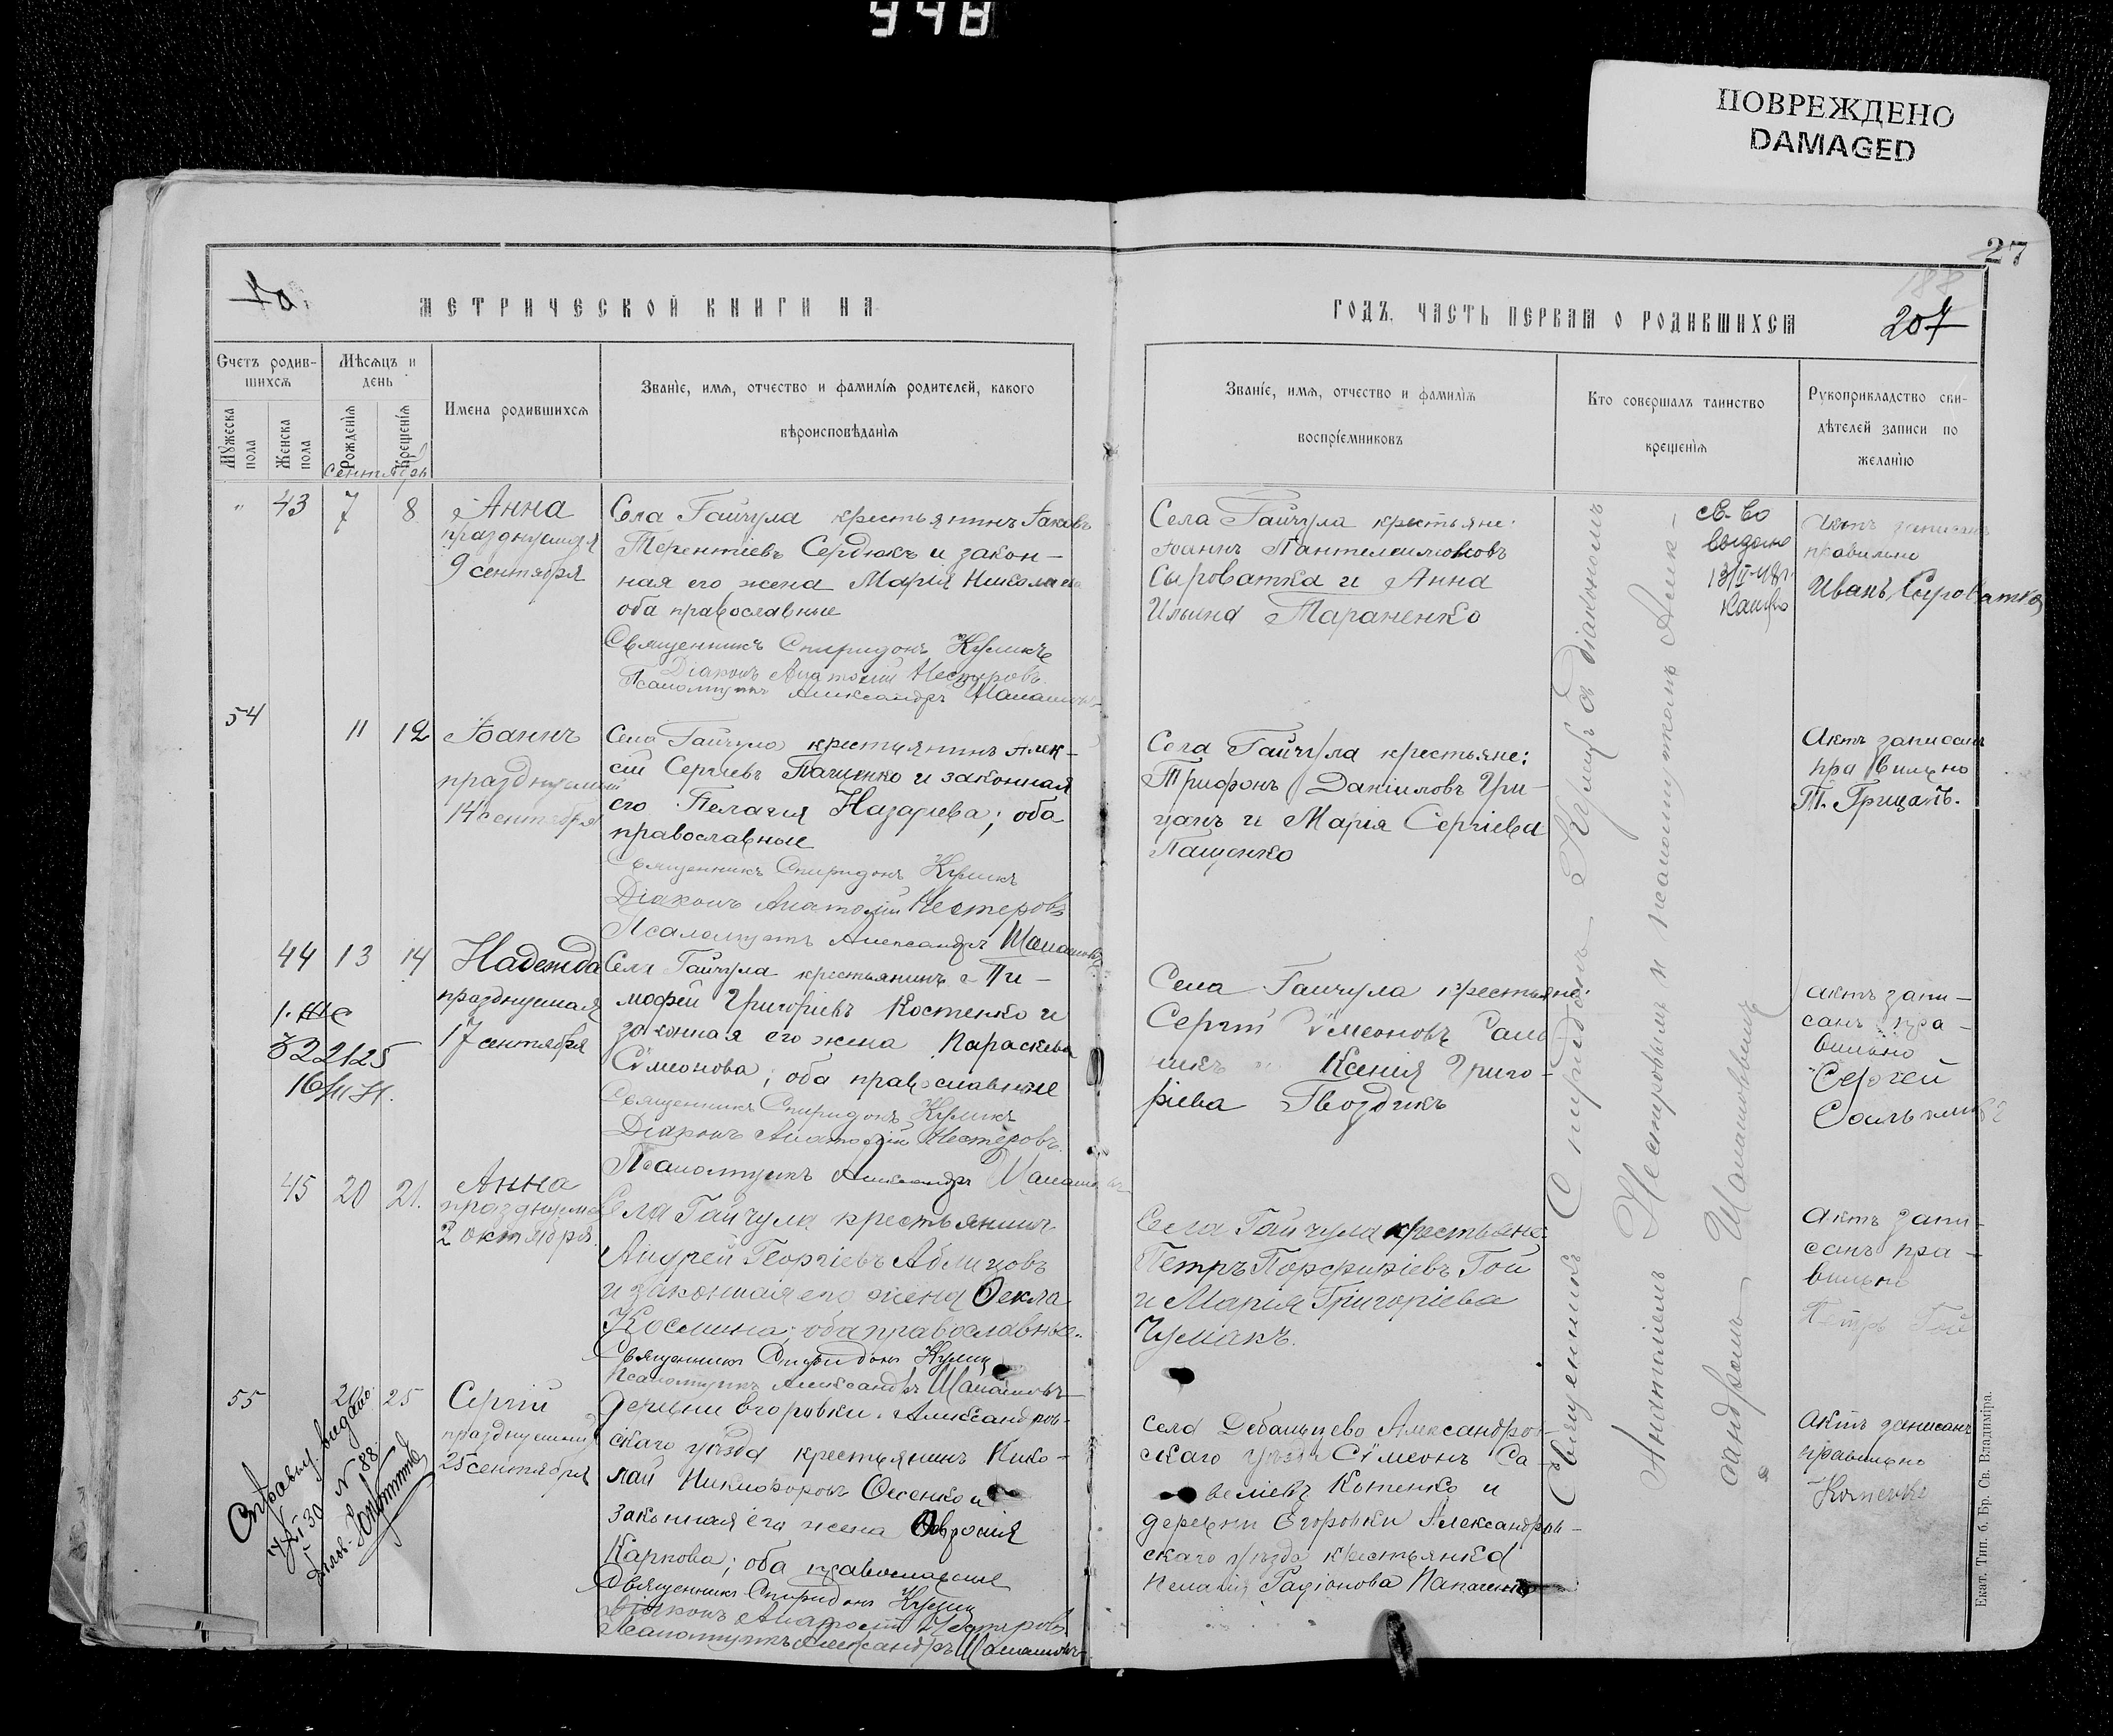 948
ПОВРЕЖДЕНО
DAMAGED
27
188
207
МЕТРИЧЕСКОЙ КНИГИ НА
ГОДЪ, ЧАСТЬ ПЕРВАЯ О РОДИВШИХСЯ
Счетъ родив-
шихся
Мѣсяцъ и
день
Мужеска
пола
Женска
пола
Рожденія
Крещенія
Имена родившихся
Званіе, имя, отчество и фамилія родителей, какого
вѣроисповѣданія
Званіе, имя, отчество и фамилія
воспріемниковъ
Кто совершалъ таинство
крещенія
Рукоприкладство сви-
дѣтелей записи по
желанію
Сентябрь
" 43 7 8
Анна
празднуемая
9 сентября
Села Гайчула крестьянинъ Іаковъ
Терентіевъ Сердюкъ и закон-
ная его жена Марія Николаева
оба православные
Священникъ Спиридонъ Куликъ
Діаконъ Анатолій Нестеровъ
Псаломщикъ Александръ
Села Гайчула крестьяне:
Іоаннъ Пантелеимоновъ
Сыроватка и Анна
Ильина Тараненко
св-во
выдано
Актъ записанъ
правильно
Иванъ Сыроватка
54 11 12
Іоаннъ
празднуемый
14 сентября
Села Гайчула крестьянинъ Алек-
сій Сергіевъ Пащенко и законная
его Пелагия Назарієва; оба
православные
Священникъ Спиридонъ Куликъ
Діаконъ Анатолій Нестеровъ
Псаломщикъ Александръ
Села Гайчула крестьяне:
Трифонъ Даніиловъ Гри-
цанъ и Марія Сергіева
Пащенко
Актъ записанъ
правильно
Т. Грицанъ.
44 13 14
322125
Надежда
празднуемая
17 сентября
Села Гайчула крестьянинъ Ти-
мофей Григоріевъ Костенко и
законная его жена Параскева
Сѵмеонова; оба православные
Священникъ Спиридонъ Куликъ
Діаконъ Анатолій Нестеровъ
Псаломщикъ Александръ
Села Гайчула крестьяне:
Сергій Сѵмеоновъ
Ксенія Григо-
ріева Гвоздикъ
актъ запи-
санъ пра-
вильно
Сергей
45 20 21.
Анна
празднуемая
2 октября.
Села Гайчула крестьянинъ
Андрей Георгіевъ Аблицовъ
и законная его жена Ѳекла
Косьмина; оба православные.
Священникъ Спиридонъ Куликъ
Псаломщикъ Александръ
Села Гайчула крестьяне:
Петръ Порфиріевъ Гой
и Марія Григоріева
Чумакъ.
Актъ запи-
санъ пра-
вильно
Петръ Гой
55 25
Сергій
празднуемый
25 сентября
деревни Егоровки Александров-
скаго уѣзда крестьянинъ Нико-
лай Никифоровъ и
законная его жена
Карпова; оба православные
Священникъ Спиридонъ Куликъ
Діаконъ Анатолій Нестеровъ
Псаломщикъ Александръ
села Дебальцево Александров-
скаго уѣзда Сѵмеонъ Са-
веліевъ Котенко и
деревни Егоровки Александров-
скаго уѣзда крестьянка
Пелагія Родіонова
Актъ записанъ
правильно
Котенко
Священникъ Спиридонъ Куликъ съ діакономъ
Анатоліемъ Нестеровымъ и псаломщикомъ Алек-
сандромъ
Екат. Тип. б. Бр. Св. Владиміра.